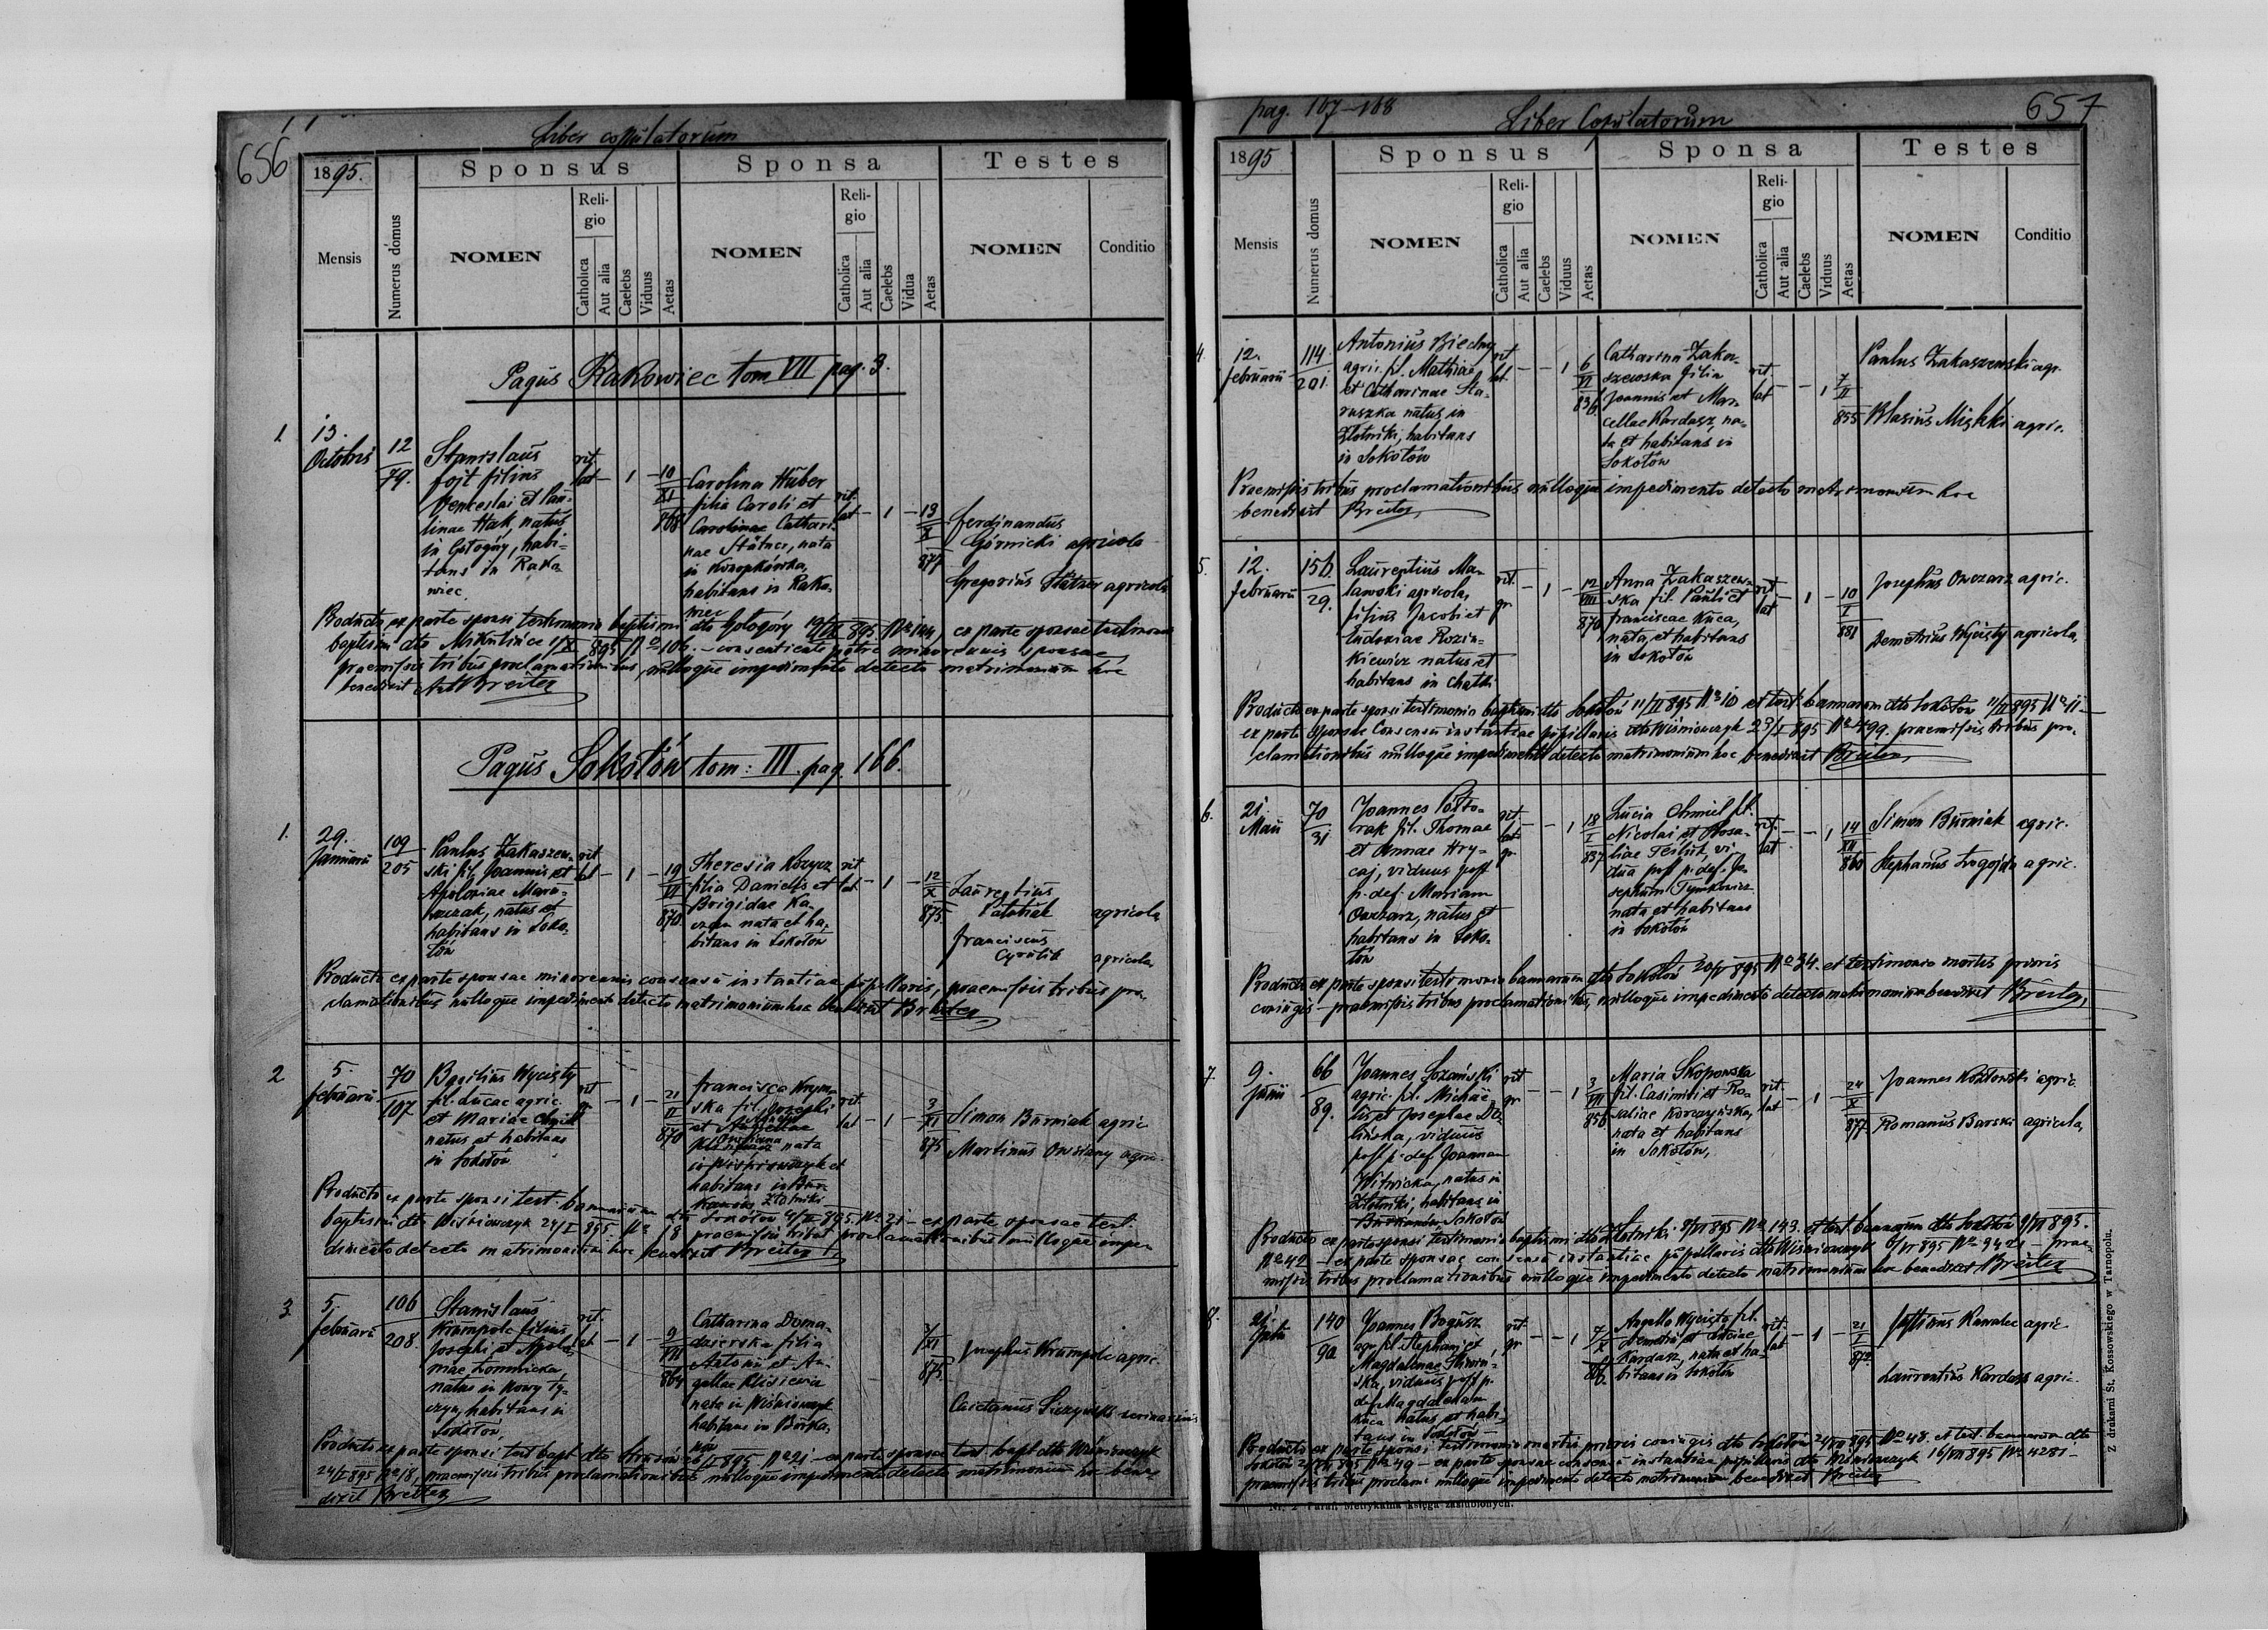 656
Liber copulatorum
1895.
Sponsus
Sponsa
Testes
Mensis
Numerus domus
NOMEN
Religio
Catholica
Aut alia
Caelebs
Viduus
Aetas
NOMEN
Religio
Catholica
Aut alia
Caelebs
Vidua
Aetas
NOMEN
Conditio
Pagus Rakowiec tom VII pag. 3.
1.
13.
Octobris
12
79.
Stanislaus
Fojt filius
Venceslai et Pau-
linae Hak, natus
in Gołogóry, habi-
tans in Rako-
wiec.
rit.
lat
-
1
-
10
XI
868
Carolina Huber
filia Caroli et
Carolinae Cathari-
nae Stätner, nata
in Konopkówka,
habitans in Rako-
wiec
rit.
lat
-
1
-
13
X
877
Ferdinandus
Górnicki agricola
Gregorius Stätner agricola
Producto ex parte sponsi testimonio baptismi dto Gołogóry 895 No 144, ex parte sponsae testimonio
baptismi dto Mikulińce 1/X 895 No 106. - consentiente patre minorennis sponsae,
praemissis tribus proclamationibus, nulloque impedimento detecto matrimonium hoc
benedixit Breiter
Pagus Sokołów tom: III. pag. 166.
1.
29.
Januarii
109
205
Paulus Zakaszew-
ski fil. Joannis et
Apoloniae Maru-
szczak, natus et
habitans in Soko-
łów
rit
lat
-
1
-
19
VI
870
Theresia Kozycz
filia Danielis et
Brigidae Ka-
nata et ha-
bitans in Sokołów
rit
lat
-
1
-
12
X
875
Laurentius
agricola
Franciscus
Cyrulik
agricola
Producto ex parte sponsae minorennis consensu instantiae pupillaris, praemissis tribus pro-
clamationibus nulloque impedimento detecto matrimonium hoc benedixit Breiter
2
5.
Februarii
70
107
Basilius Wycisty
fil. Lucae agric.
et Mariae Chmil
natus et habitans
in Sokołów
rit
gr
-
1
-
21
II
870
Francisca Krym-
ska fil. Josephi
et
nata
in Wiśniowczyk et
habitans in Bur-
kanów Złotniki
rit.
lat
-
1
-
3
XI
875
Simon Burniak agric.
Martinus Owsiany agric.
Producto ex parte sponsi test. bannorum dto Sokołów 4/II 895. No 21 - ex parte sponsae test.
baptismi dto Wiśniowczyk 24/I 895. No 18 praemissis tribus proclamationibus nulloque impe-
dimento detecto matrimonium hoc benedixit Breiter
3
5.
Februarii
106
208.
Stanislaus
Krumpolc filius
Josephi et Apolo-
niae Łomnicka,
natus in Nowy Ty-
czyn, habitans in
Sokołów.
rit.
lat
-
1
-
9
VIII
864
Catharina Doma-
dzierska filia
Antonii et An-
gellae Klisiewicz
nata in Wiśniowczyk
habitans in Burka-
nów
7
XI
875.
Josephus Krumpolc agric.
Caietanus Siczyński
Producto ex parte sponsi test. bapt. dto 26/I 895 No 21 - ex parte sponsae test. bapt. dto Wiśniowczyk
24/I 895 No 18, praemissis tribus proclamationibus nulloque impedimento detecto matrimonium hoc bene-
dixit Breiter
pag. 167-168
Liber Copulatorum
657
1895
Sponsus
Sponsa
Testes
Mensis
Numerus domus
NOMEN
Religio
Catholica
Aut alia
Caelebs
Viduus
Aetas
NOMEN
Religio
Catholica
Aut alia
Caelebs
Viduus
Aetas
NOMEN
Conditio
4.
12.
Februarii
114
201.
Antonius Biedny
agric. fil. Mathiae
et Catharinae Sta-
ruszka natus in
Złotniki, habitans
in Sokołów
rit
lat.
-
-
1
6
VI
836
Catharina Zaka-
szewska filia
Joannis et Mar-
cellae Kardasz, na-
ta et habitans in
Sokołów
rit.
lat
-
-
1
7
II
855
Paulus Zakaszewski agr.
Blasius Mishki agric.
Praemissis tribus proclamationibus nulloque impedimento detecto matrimonium hoc
benedixit Breiter
5.
12.
Februarii
156.
29.
Laurentius Ma-
lawski agricola,
filius Jacobi et
Eudoxiae Rozin-
kiewicz natus et
habitans in Chatki
rit.
gr
-
1
-
12
VIII
870
Anna Zakaszew-
ska fil. Pauli et
Franciscae Kuca,
nata et habitans
in Sokołów
rit
lat
-
1
-
10
I
881
Josephus Owczarz agric.
Demetrius Wycisty agricola,
Producto ex parte sponsi testimonio baptismi dto Sokołów 11/II 895 No 10 et test. bannorum dto Sokołów 11/II 895 No 11 -
ex parte sponsae consensu instantiae pupillaris dto Wiśniowczyk 23/I 895 No 499. praemissis tribus pro-
clamationibus nulloque impedimento detecto matrimonium hoc benedixit Breiter
6.
21.
Maii
70
31
Joannes Pośto-
rak fil. Thomae
et Annae Hry-
caj, viduus post
p. def. Mariam
Owczarz, natus et
habitans in Soko-
łów
rit.
lat
gr
-
-
1
18
I
837
Lucia Chmil fil.
Nicolai et Rosa-
liae Tesluk, vi-
dua post p. def. Jo-
sephum Tymkowicz
nata et habitans
in Sokołów
rit.
lat
-
-
1
14
XII
860
Simon Burniak agric.
Stephanus Łogojda agric.
Producto ex parte sponsi testimonio bannorum dto Sokołów 20/V 895 No 34. et testimonio mortis prioris
coniugis - praemissis tribus proclamationibus, nulloque impedimento detecto matrimonium benedixit Breiter
7.
9.
Junii
66
89.
Joannes Łozański
agric. fil. Michae-
lis et Josephae Do-
lińska, viduus
post p. def. Joannam
Witwicka, natus in
Złotniki, habitans in
Burkanów, Sokołów
rit
gr
-
-
1
3
VII
856
Maria Skoponska
fil. Casimiri et Ro-
saliae Korczyńska,
nata et habitans
in Sokołów,
rit.
lat
-
1
-
24
X
877
Joannes Kozłowski agric.
Romanus Barski agricola,
Producto ex parte sponsi testimonio baptismi dto Złotniki 8/VI 895 No 143. et test. bannorum dto Sokołów 9/VI 895.
No 42 - ex parte sponsae consensu instantiae pupillaris dto Wiśniowczyk 6/VI 895 No 9421 - prae-
missis tribus proclamationibus nulloque impedimento detecto matrimonium hoc benedixit Breiter
8.
21.
140
90
Joannes Bogusz
agr. fil. Stephani et
Magdalenae Słowin-
ska, viduus post p.
def. Magdalenam
Kuca natus et habi-
tans in Sokołów
rit.
gr
-
-
1
7
X
Angella Wycisto fil.
Demetrii et Luciae
Kardasz, nata et ha-
bitans in Sokołów
rit.
lat
-
1
-
21
I
Justinus Kawalec agric.
Laurentius Kardasz agric.
Producto ex parte sponsi testimonio mortis prioris coniugis dto Sokołów 895 No 48. et test. bannorum dto
Sokołów 895 No 49 - ex parte sponsae consensu instantiae pupillaris dto Wiśniowczyk 16/VII 895 No 4281 -
praemissis tribus proclam. nulloque impedimento detecto matrimonium benedixit Breiter
Nr. 2 Parafi Metrykalna księga zaślubionych.
Z drukarni St. Kossowskiego w Tarnopolu.